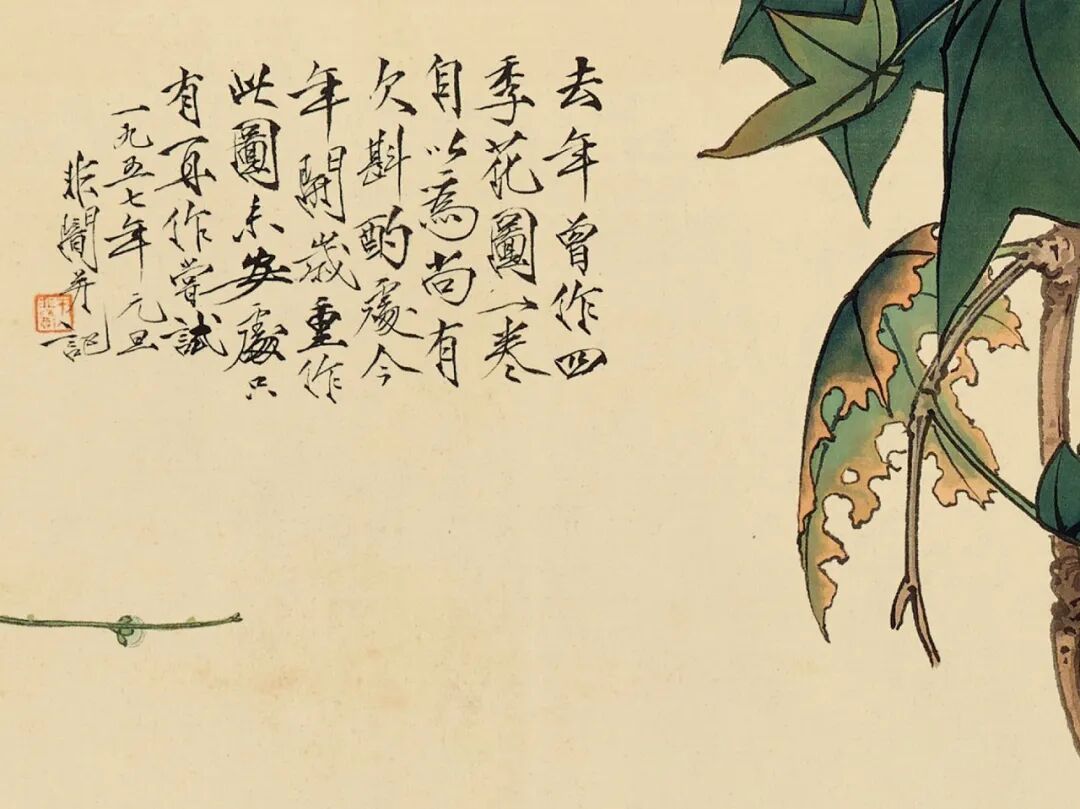 去年曾作四
季花圖一卷
自以為尚有
欠斟酌處今
年開歲重作
此圖未安處只
有再作嘗試
一九五七年元旦
非闇并記